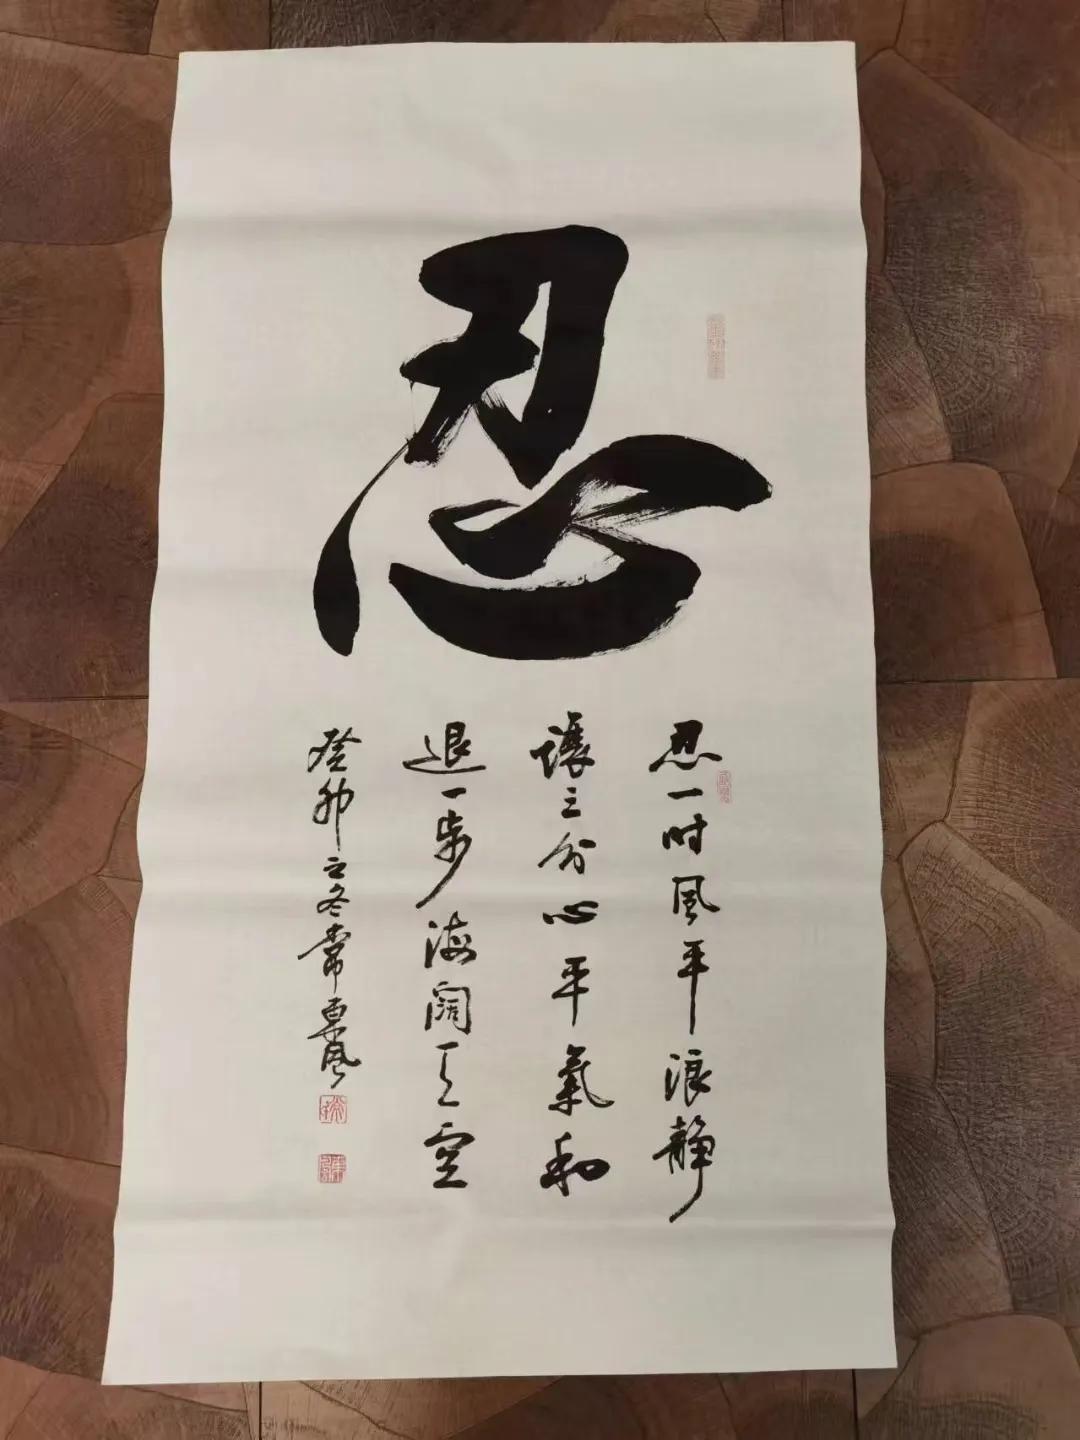 忍
忍一时风平浪静
让三分心平气和
退一步海阔天空
癸卯之冬常惠风